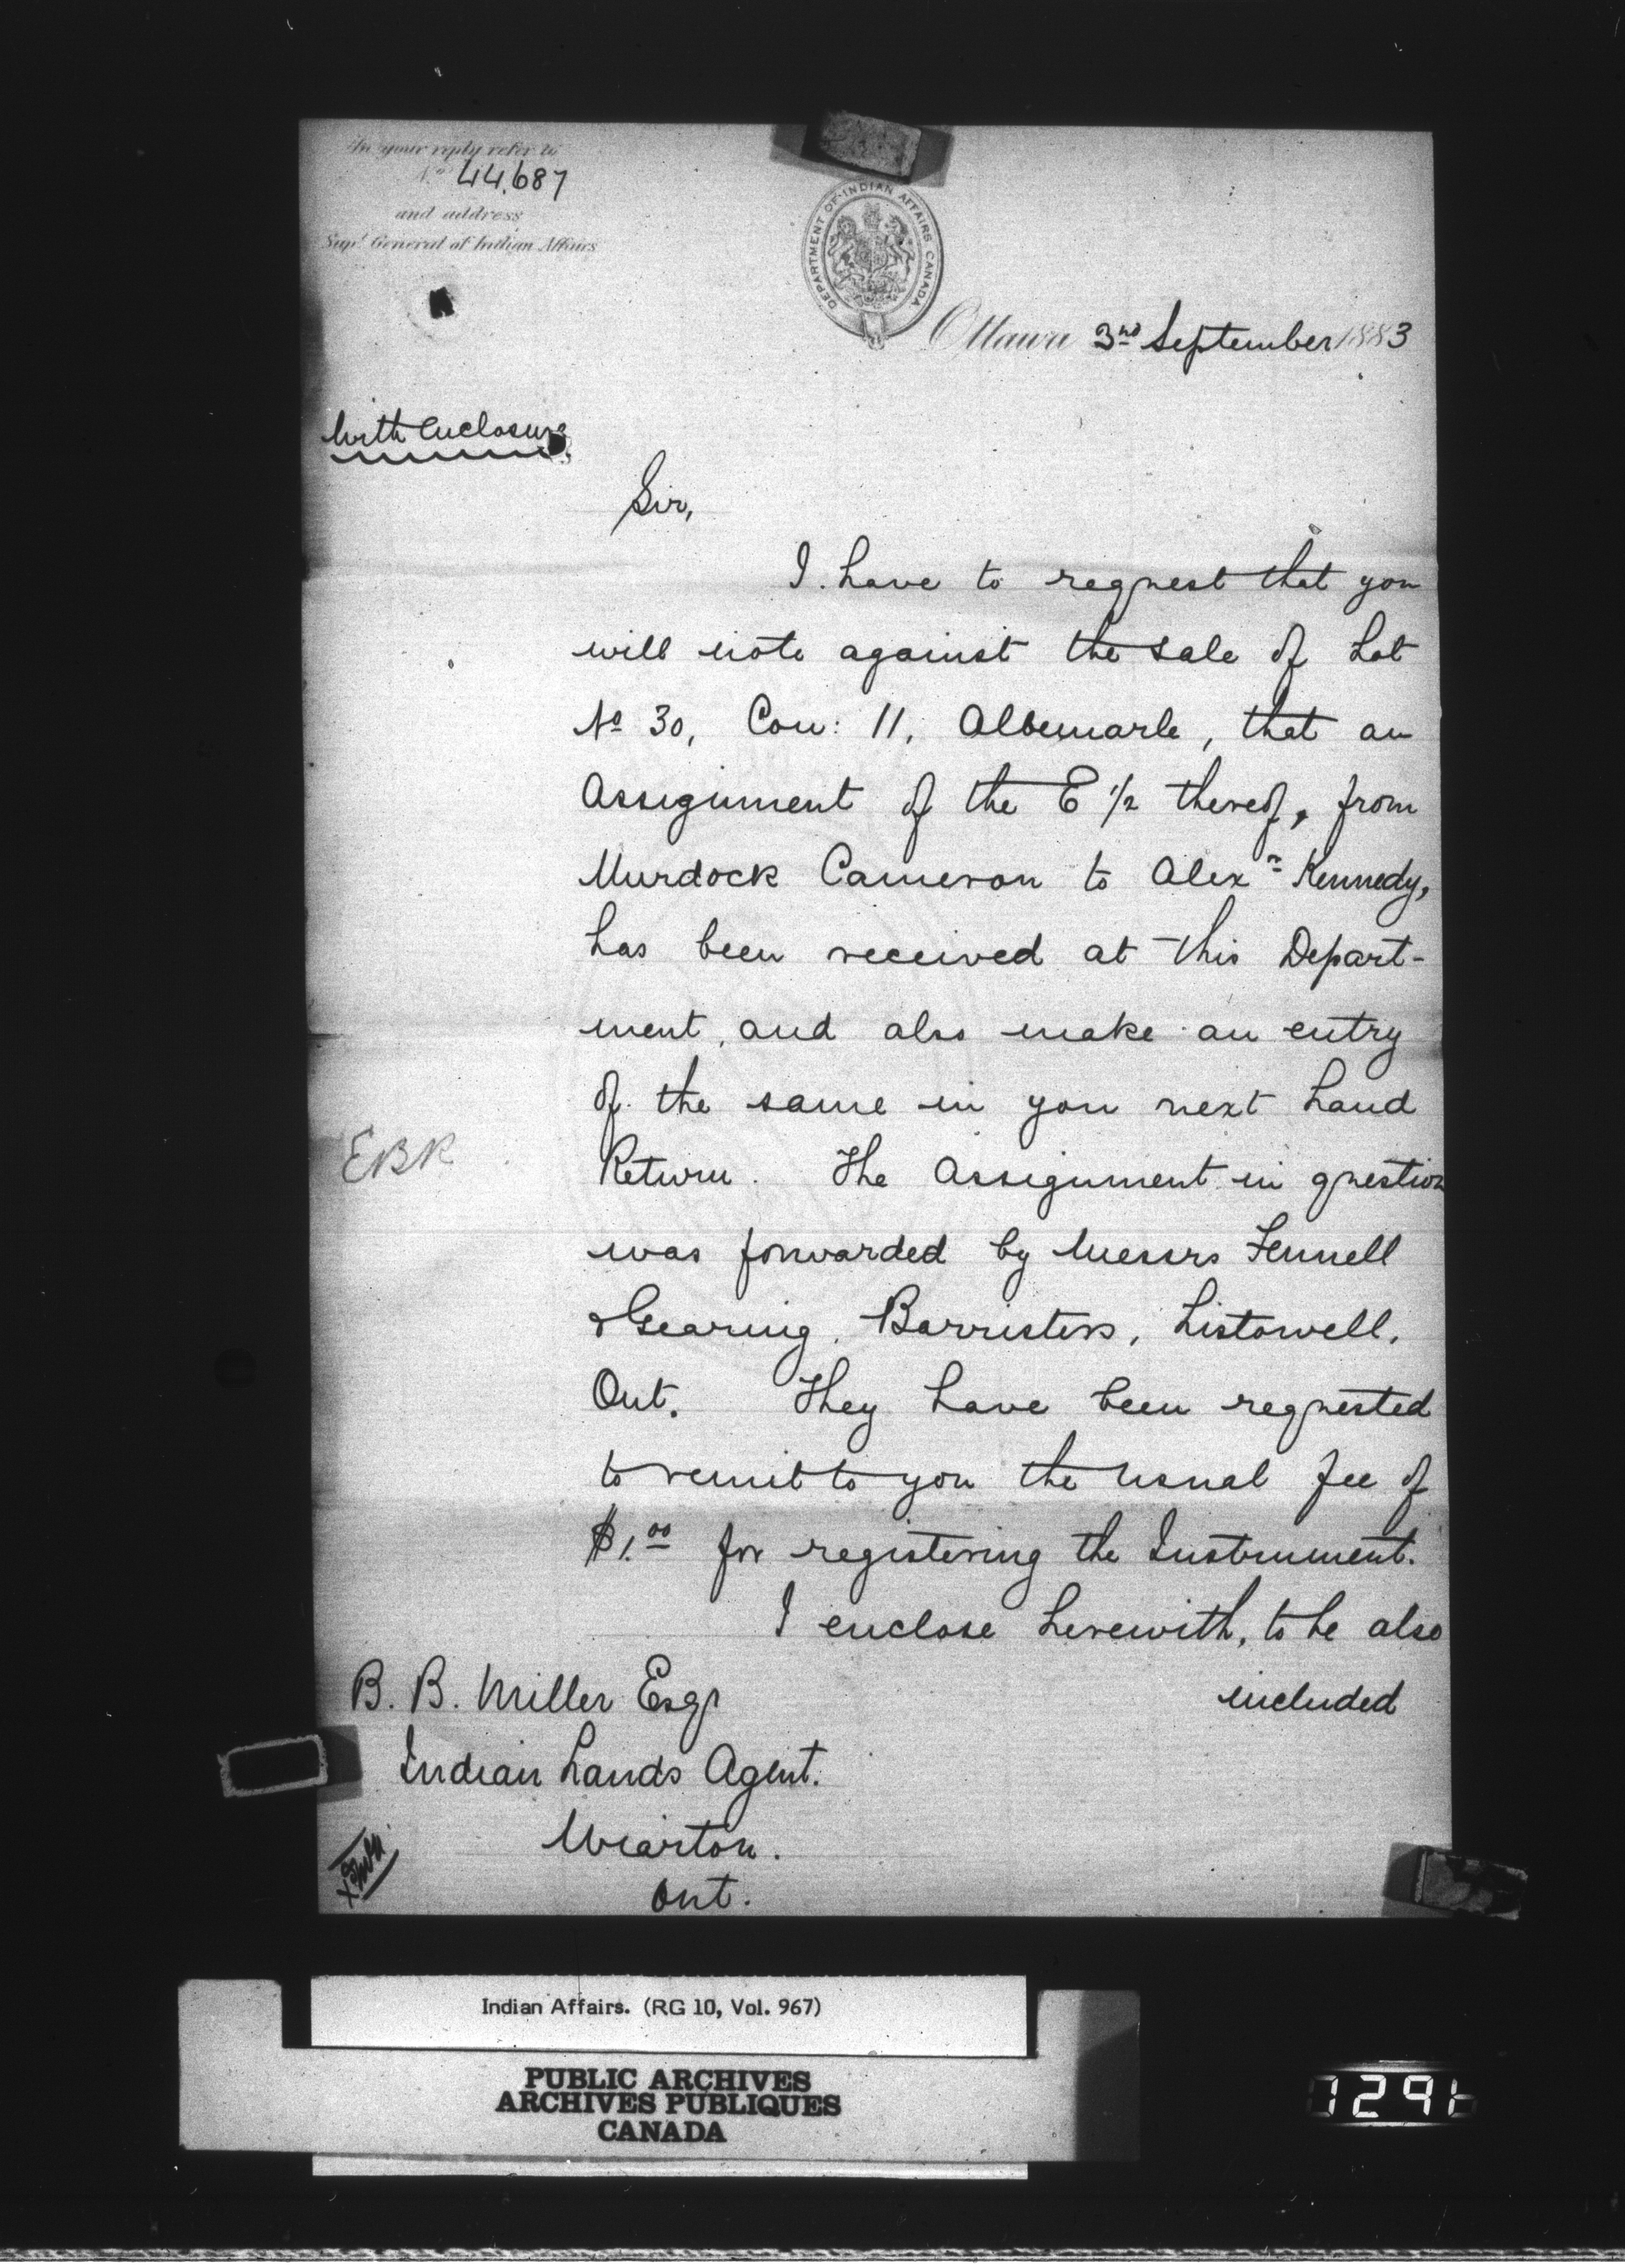 In your reply refer to
No 44,687
and address
Supt General of Indian Affairs
DEPARTMENT OF INDIAN AFFAIRS CANADA
Ottawa 3rd September 1883
With Enclosure.
Sir,
I have to request that you
will note against the sale of Lot
No 30, Con: 11, Albemarle, that an
Assignment of the E 1/2 thereof, from
Murdock Cameron to Alexr Kennedy,
has been received at this Depart-
ment, and also make an entry
of the same in you next Land
Return. The Assignment in question
EBR
was forwarded by Messrs Fennell
& Gearing, Barristers, Listowell,
Ont. They have been requested
to remit to you the usual fee of
$1.00 for registering the Instrument.
I enclose herewith, to be also
included
B. B. Miller Esqr
Indian Lands Agent.
Wiarton.
Ont.
Indian Affairs. (RG 10, Vol. 967)
PUBLIC ARCHIVES
ARCHIVES PUBLIQUES
CANADA